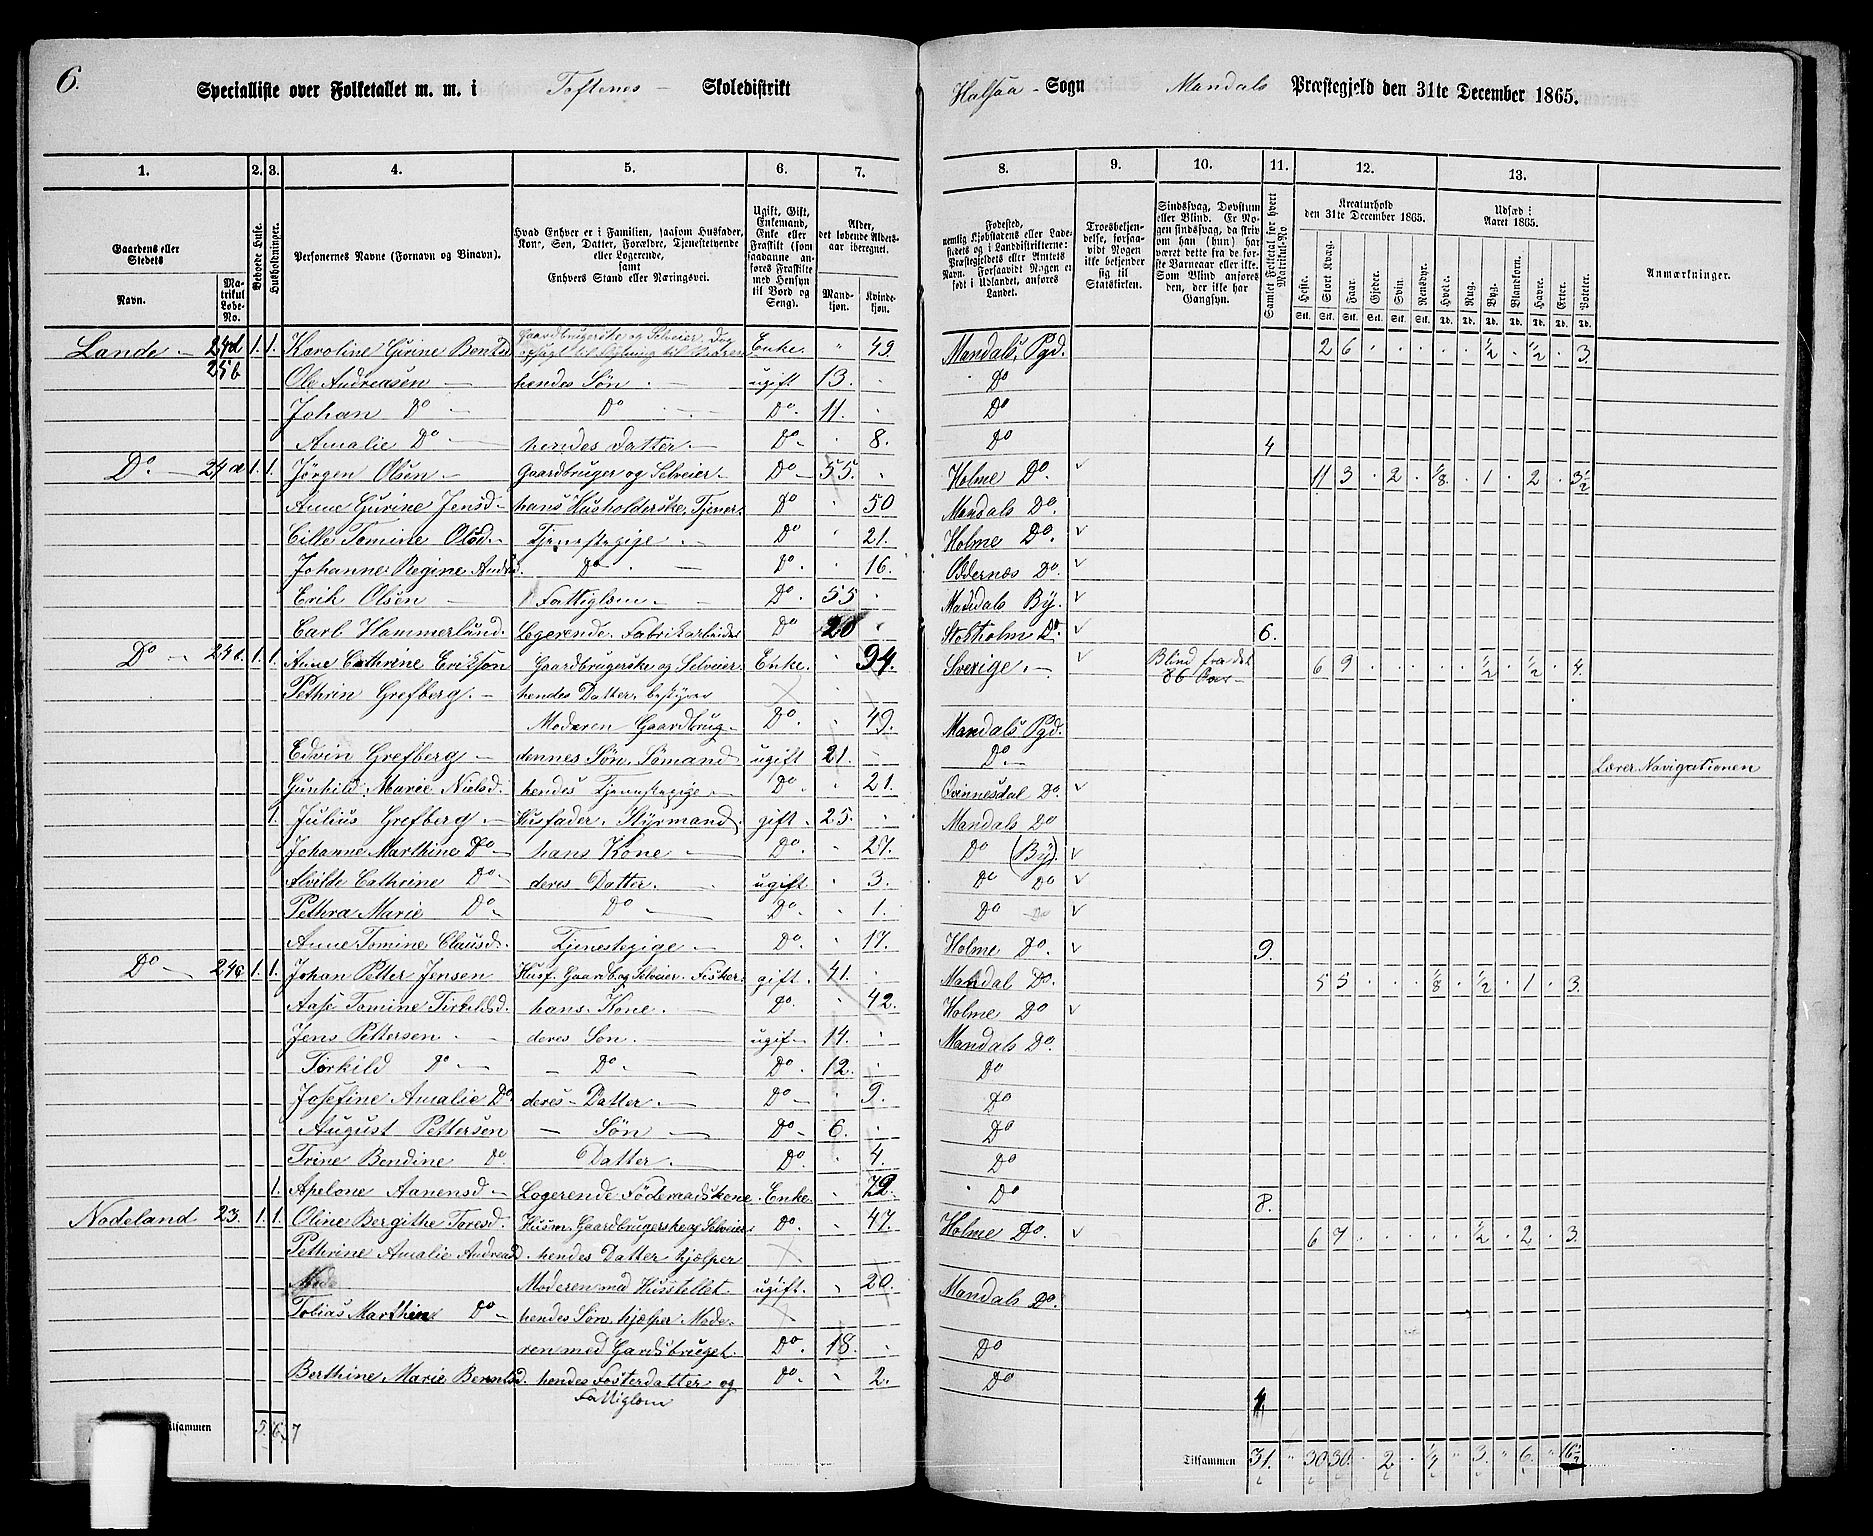 6.
Specialliste over Folketallet m. m. i Toftenes – Skoledistrikt
Halsaa – Sogn Mandals Præstegjeld den 31te December 1865.
1. 2. 3. 4. 5. 6. 7. 8. 9. 10. 11. 12. 13.
Gaardens eller Stedets Navn. Matrikul Løbe-No. Beboede Huse. Husholdninger.
Personernes Navne (Fornavn og Binavn).
Hvad Enhver er i Familien, saasom Husfader, Kone, Søn, Datter, Forældre, Tjenestetyende eller Logerende, samt Enhvers Stand eller Næringsvei.
Ugift, Gift, Enkemand, Enke eller Fraskilt (som saadanne anføres Fraskilte med Hensyn til Bord og Seng).
Alder, det løbende Aldersaar iberegnet. Mandkjøn. Kvindekjøn.
Fødested, nemlig Kjøbstadens eller Ladestedets og i Landdistrikterne: Præstegjeldets eller Amtets Navn. Forsaavidt Nogen er født i Udlandet, anføres Landet.
Troesbekjendelse, forsaavidt Nogen ikke bekjender sig til Statskirken.
Sindssvag, Døvstum eller Blind. Er Nogen sindssvag, da skriv om han (hun) har været dette fra de første Barneaar eller ikke. Som Blind anføres den, der ikke har Gangsyn.
Samlet Folketal for hvert Matrikul-No
Kreaturhold den 31te December 1865. Heste. Stort Kvæg. Faar. Gjeder. Svin. Rensdyr.
Udsæd i Aaret 1865. Hvede. Rug. Byg. Blandkorn. Havre. Erter. Poteter.
Anmærkninger.
Lande – 24d 1. 1. Karoline Gurine Bentsd Gaardbrugerske og Selveier. Enke. " 49. Mandals Pgd. 2 6 ½ ½ 3.
25b Ole Andreasen – hendes Søn. – ugift 13. Do
Johan Do – Do – Do. 11. Do
Amalie Do – hendes Datter. – Do 8. Do 4
Do – 24a 1. 1. Jørgen Olsen – Gaardbruger og Selveier. Do – 55. Holme Do. 11 3 2 ⅛ 1 2 3½
Anne Gurine Jensd – hans Husholderske, Tjener. Do 50 Mandals Do.
Cille Tomine Olsd – Tjenestepige. – Do 21. Holme Do.
Johanne Regine Do. – Do. 16. Oddernæs Do.
Erik Olsen – Fattiglem. – Do. 55 Mandals By.
Carl Hammerlund. Logerende. Fabrikarbeider Do 20 Stokholm Do. 6.
Do – 1. 1. Anne Cathrine Erikson Gaardbrugerske og Selveier Enke. 94. Sverige. – Blind fra det 86 Aar – 6 9 ½ ½ 4.
Pethrin Grefberg. – hendes Datter, bestyrer
Moderen Gaardbrug – Do. 49. Mandals Pgd.
Edvin Grefberg – dennes Søn, Sømand ugift 21. Do. – Lærer Navigationen
Gunhild Marie Nielsd. hendes Tjenestepige – Do 21. Qvinnesdal Do.
1. Julius Grefberg. – Husfader. Styrmand. gift. 25. Mandals Do
Johanne Marthine Do – hans Kone – Do. 27. Do (By).
Alvilde Cathrine Do – deres Datter. – ugift. 3. Do Do
Pethra Marie Do – Do – Do. 1. Do Do
Anne Tomine Clausd. Tjenestepige – Do. 17. Holme Do. 9.
Do – 1. 1. Johan Petter Jensen Husf. Gaardb. og Selveier. Fisker. gift. 41. Mandal Do. 5 5 ⅛ ½ 1 3.
Aase Tomine Tirkeldsd. hans Kone. – Do. 42. Holme Do
Jens Pettersen – deres Søn. – ugif – 14. Mandals Do.
Torkild Do – Do. – Do. 12. Do
Josefine Amalie Do. deres Datter. – Do – 9. Do
August Pettersen – Søn – Do – 6. Do
Trine Bendine Do. Datter. – Do. 4. Do
1. Apelone Aanensd – Logerende Føderaadskone. Enke. 72. Do 8.
Nodeland 23. 1. 1. Oline Bergithe Toresd. Husm. Gaardbrugerske og Selveier. Do 47. Holme Do. 6 7 ½ 2 3.
Pethrine Amalie Andreasd. hendes Datter hjælper
Moderen med Husstellet. ugift. 20. Mandals Do.
Tobias Marthin Do – hendes Søn, hjælper Mode-
ren med Gardsbruget. Do. 18. Do
Berthine Marie Berntsd. hendes Fosterdatter og Do 2. Do
Fattiglem 4.
Tilsammen 5. 6. 7
Tilsammen 31. " 30 30. 2 ¼ " 3. " 6. " 16½